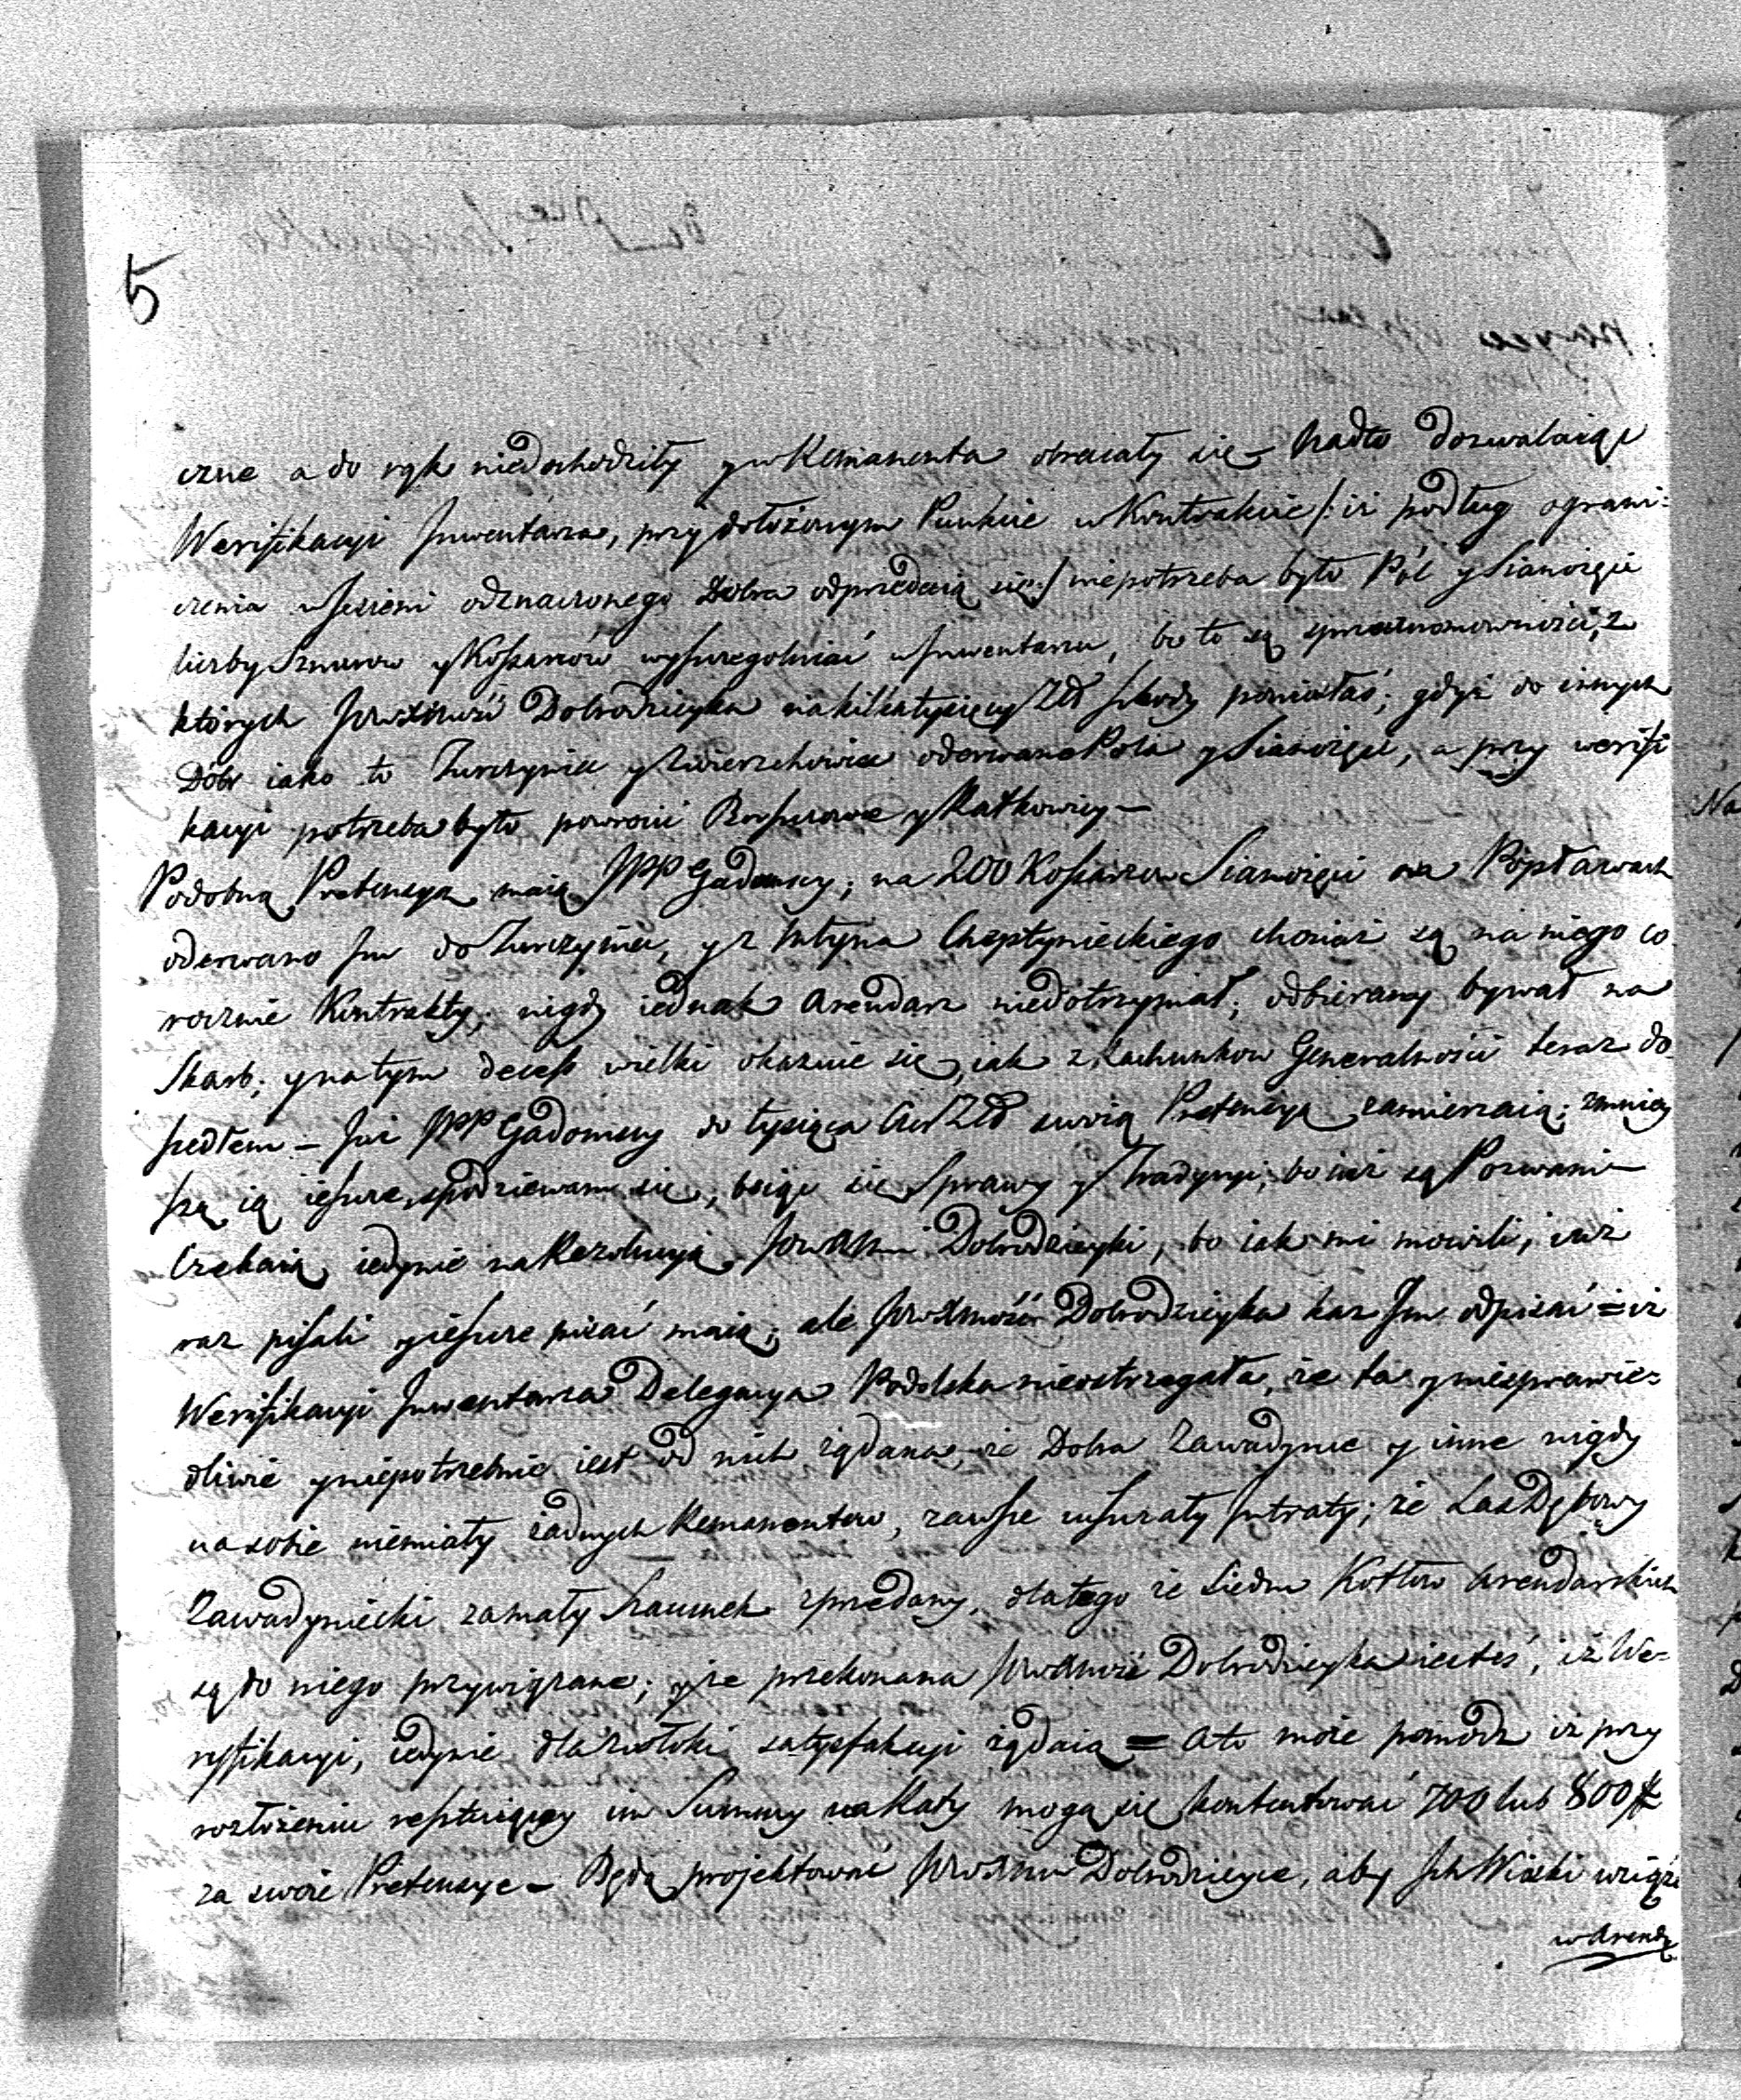 5
czne a do rąk niedochodziły y w Remanenta obracały się – Nadto dozwalaiąc
Weryfikacyi Inwentarza, przy dołożonym Punkcie w Kontrakcie /: iż podług ograni:
czenia w Jesieni odznaczonego Dobra odprzedaią się :/ niepotrzeba było Pól y Sianożęci
liczby Sznurow y Kosarzów wyszczegolniać w Inwentarzu, bo to są
których JWWmość Dobrodzieyka na kilkatysięcy Złł szkody poniosłaś; gdyż do innych
Dobr iako to Zurczyniec y Zwierzchowiec oderwane Pola y Sianożęcie, a przy weryfi
kacyi potrzeba było powrocić y Ratkowicy –
Podobną Pretensyą maią JPP Gadomscy; na 200 Kosarzow Sianożęci na
oderwano Im do Zurczyniec, y z Młyna Chroptynieckiego chociaż są na niego co
rocznie Kontrakty, nigdy iednak Arendarz niedotrzymał; odbierany bywał na
Skarb; y na tym decess wielki okazuie się, iak z Rachunkow Generalności teraz do
szedłem – Już JPP Gadomscy do tysiąca Złł swoią Pretensyą zamierzaią; zmniey
szą ią ieszcze, spodziewam się, boiąc się Sprawy y Tradycyi, bo iuż są Pozwani –
Czekaią iedynie na Rezolucyą JWWMM Dobrodzieyki, bo iak mi mowili, iuż
raz pisali y ieszcze pisać maią; ale JWWmość Dobrodzieyka każ Im odpisać = iż
Weryfikacyi Inwentarza Delegacya Podolska nieostrzegała, że ta y niesprawie=
dliwie y niepotrzebnie iest od nich żądana, że Dobra Zawadynce y inne nigdy
na sobie niemiały żadnych Remanentow, zawsze wszczały Intraty; że Las Dębowy
Zawadyniecki zamały Szacunek sprzedany, dlatego że siedm Kotłow Arendarskich
są do niego przywiązane; y że przekonana JWWmość Dobrodzieyka iesteś, iż We=
ryfikacyi, iedynie dla zwłoki satysfakcyi żądaią = A to może pomodz iż przy
rozłożeniu resztuiącey im Summy na Raty mogą się kontentować 700 lub 800 #
za swoie Pretensye – Będą projektować JWWMM Dobrodzieyce, aby Ich Wioski wziąć
w Arendę